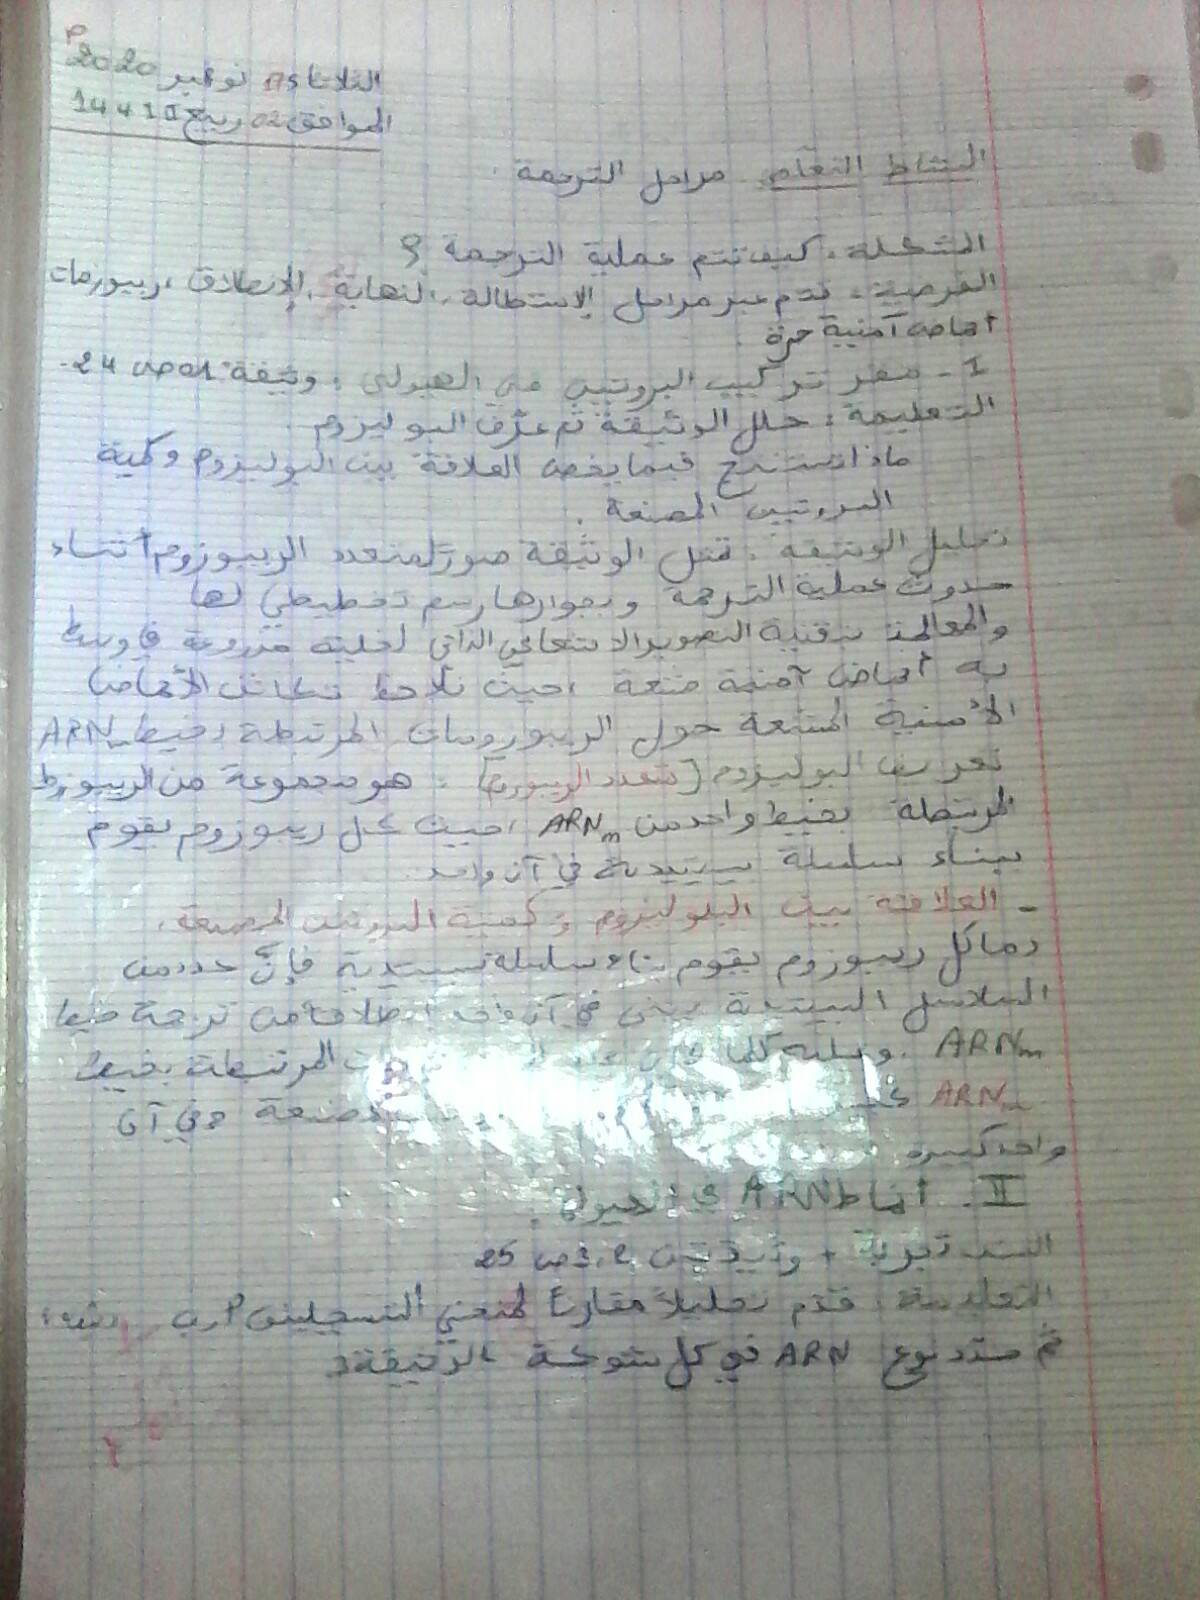 الثلاثاء 17 نوفمبر 2020 م
الموافق 02 ربيع II 1441
النشاط مراحل الترجمة.
المشكلة: كيف تتم عملية الترجمة ؟
الفرضية: تتم عبر مراحل الاستطالة، النهاية، الإنطلاق، ريبوزمات
أحماض آمنية حرة.
I - مقر تركيب البروتين في الهيولى: وثيقة 01 ص 24.
التعليمة: حلل الوثيقة ثم عرّف البوليزوم
ماذا تستنتج فيما يخص العلاقة بين البوليزوم وكمية
البروتين المصنعة.
تحليل الوثيقة: تمثل الوثيقة صورة لمتعدد الريبوزوم أثناء
حدوث عملية الترجمة وبجوارها رسم تخطيطي لها
والمعالجة بتقنية التصوير الاشعاعي الذاتي لخلية مزروعة في وسط
به أحماض آمنية مشعة، حيث نلاحظ تكاثف الأحماض
الأمنية المشعة حول الريبوزومات المرتبطة بخيط ARNm
تعريف البوليزوم (متعدد الريبوزوم): هو مجموعة من الريبوزومات
المرتبطة بخيط واحد من ARNm، حيث كل ريبوزوم يقوم
ببناء سلسلة بيبتيدية في آن واحد.
- العلاقة بين البلوليزوم وكمية البروتين المصنعة.
بما كل ريبوزوم يقوم بناء سلسلة بيبتيدية فإن عدد من
السلاسل البيبتيدية في آن واحد انطلاقا من ترجمة خيط
ARNm. وعليه كلما المرتبطة بخيط
ARNm مصنعة وفي آن
واحد كبيرة
II. أنماط ARN في الهيولى.
السند تجربة + وثيقتين 2، 3 ص 25
التعليمة: قدم تحليلاً مقارنا لمنحني التسجيلين أ وب
ثم حدد نوع ARN في كل شوكة الوثيقة 3